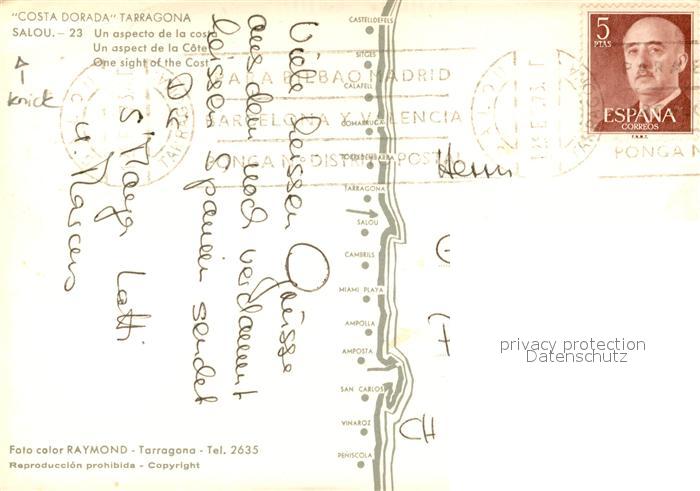 "COSTA DORADA" TARRAGONA
SALOU. – 23 Un aspecto de la costa
Un aspect de la Côte
One sight of the Cost
knick
Viele heissen Grüsse
aus dem noch verdammt
heissen Spanien sendet
Dir
H. Marcus
CASTELLDEFELS
SITGES
CALAFELL
COMARRUGA
TORREDEMBARRA
TARRAGONA
SALOU
CAMBRILS
MIAMI PLAYA
AMPOLLA
AMPOSTA
SAN CARLOS
VINAROZ
PEÑISCOLA
PARA BILBAO MADRID
BARCELONA Y VALENCIA
PONGA Nº DISTRITO POSTAL
5
PTAS
ESPAÑA
CORREOS
F.N.M.T.
PONGA Nº
Herrn
CH
privacy protection
Datenschutz
Foto color RAYMOND - Tarragona - Tel. 2635
Reproducción prohibida - Copyright